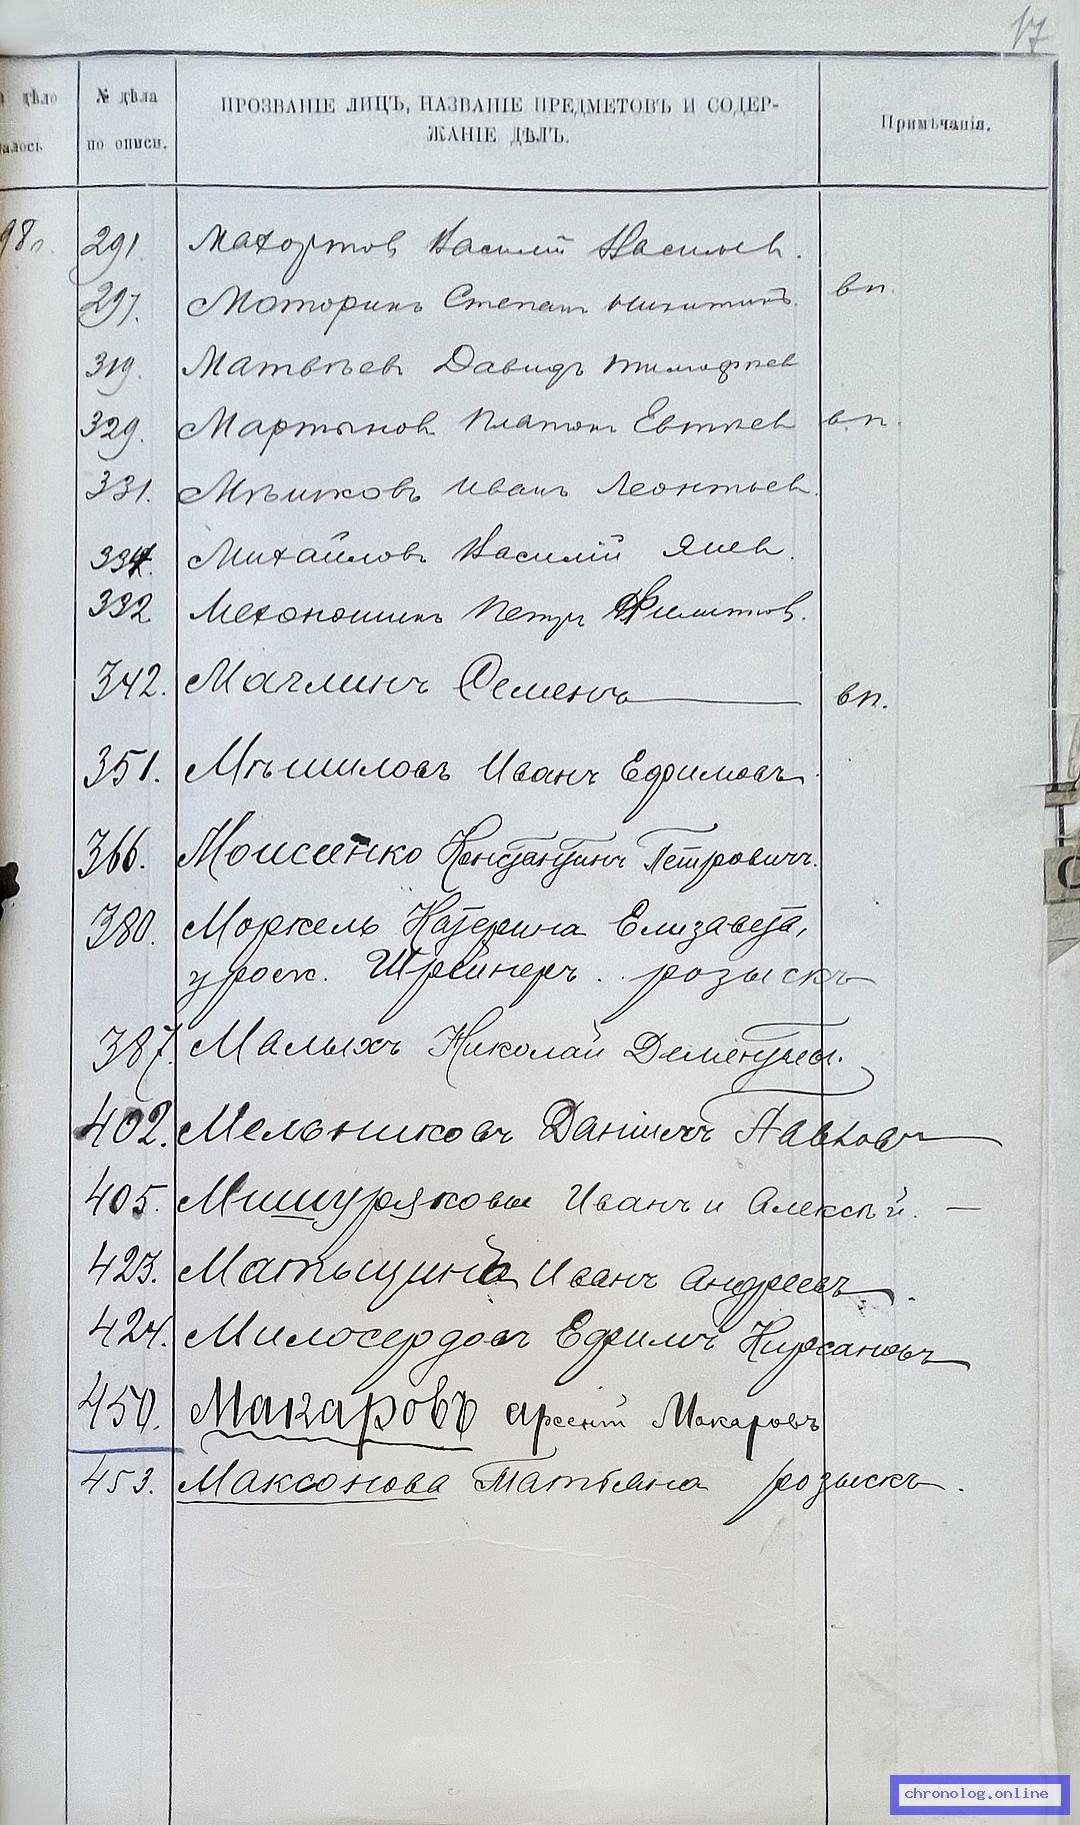 17
дѣло
№ дѣла
ПРОЗВАНІЕ ЛИЦЪ, НАЗВАНІЕ ПРЕДМЕТОВЪ И СОДЕР-
ЖАНІЕ ДѢЛЪ.
Примѣчанія.
алось
по описи.
98 г.
291. Махортов Василій Васильев.
297. Моторинъ Степан Никитинъ. вп.
319. Матвѣев Давидъ Тимофѣев
329. Мартынов Платон Евтѣев вп.
331. Мѣшковъ Иванъ Леонтьев.
334. Михайловъ Василій Яков.
332 Мехоношинъ Петръ Филиппов.
342. Маглинъ Семенъ вп.
351. Мѣшиловъ Иванъ Ефимовъ
366. Моисеенко Константинъ Петровичъ.
380. Моркель Катерина Елизавета,
урож. Штейнеръ. розыскъ
387. Малыхъ Николай Дементьев.
402. Мельниковъ Даніилъ Павловъ
405. Мишуряковы Иванъ и Алексѣй. —
423. Матыцинъ Иванъ Андреевъ.
424. Милосердовъ Ефимъ Кирсановъ
450. Макаровъ Арсеній Макаровъ
453. Максонова Татьяна розыскъ.
chronolog.online